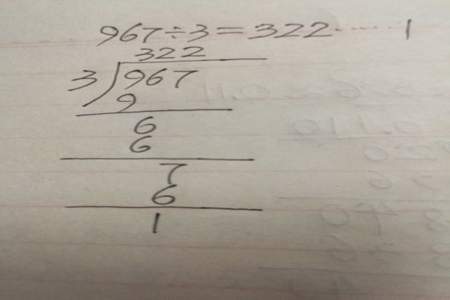 967÷3=322……1
322
3)967
9
6
6
7
6
1